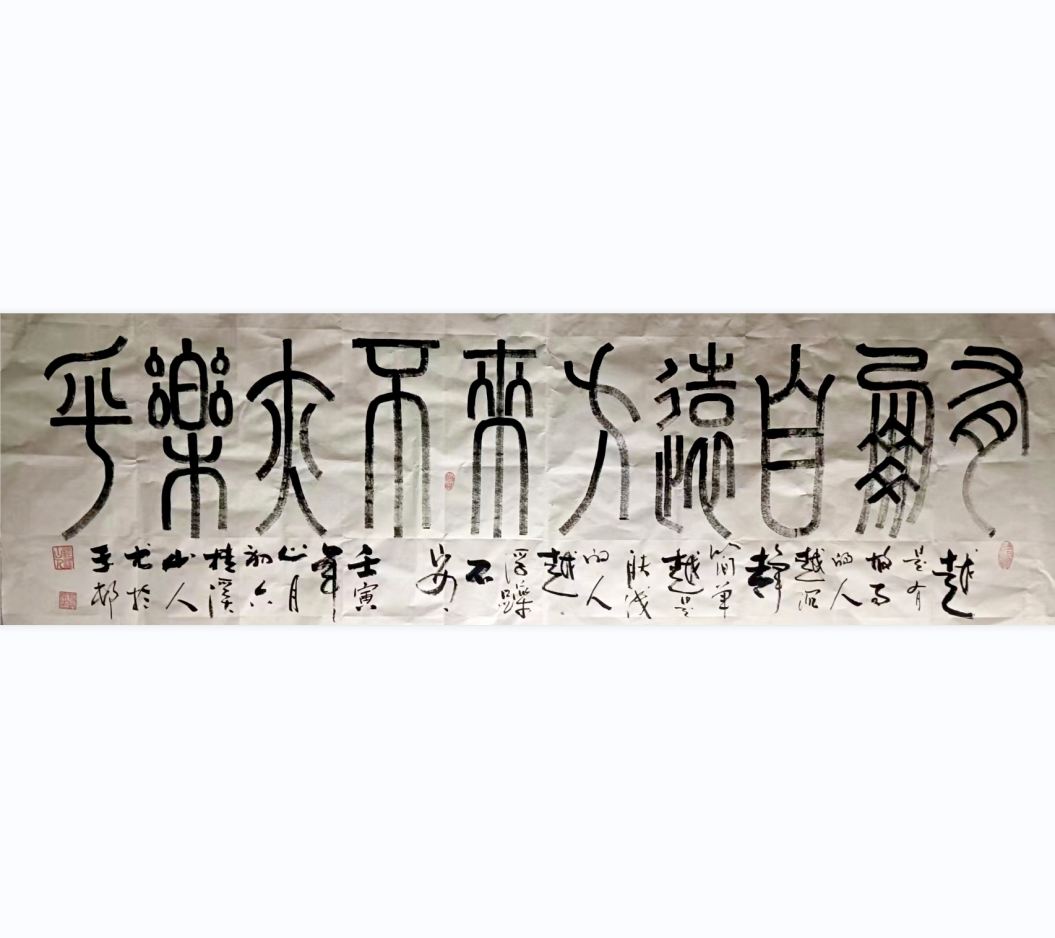 有朋自遠方來不亦樂乎
越
是有
故事
的人
越沉
靜
簡單
越是
膚淺
的人
越
浮躁
不
安
壬寅
年
七月
初六
桂溪
山人
於